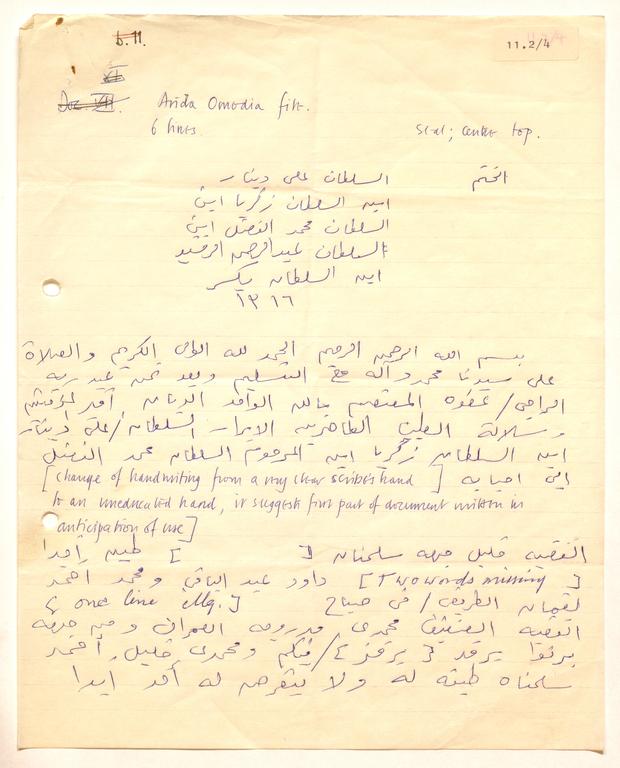 D.11.
11.2/4
VI
Doc. VII. Arida Omodia file.
6 lines. seal; center top.
الختم السلطان على دينار
ابن السلطان زكريا ابن
السلطان محمد الفضل ابن
السلطان عبدالرحمن الرشيد
ابن السلطان بكر
١٣١٦
بسم الله الرحمن الرحيم الحمد لله الوالى الكريم والصلاة
على سيدنا محمد وآله مع التسليم وبعد فمن عبد ربه
الراجى / عفوه المعتصم بالله الواقف
وسلالة الطاهرين الابرار السلطان / على دينار
ابن السلطان زكريا ابن المرحوم السلطان محمد الفضل
الى احبابه [change of handwriting from a very clear scribe's hand
to an uneducated hand, it suggests first part of document written in
anticipation of use]
الفقيه خليل جهه سلمناه [ ] طين
[Two words missing] داود عبد الباقى ومحمد احمد
لقمان الطريق / فى صباح [one line illeg.]
الفقيه محمدى العمران ومن جهه
ومحمدى خليل
سلمناه طينه له ولا يتعرض له أحد ابدا